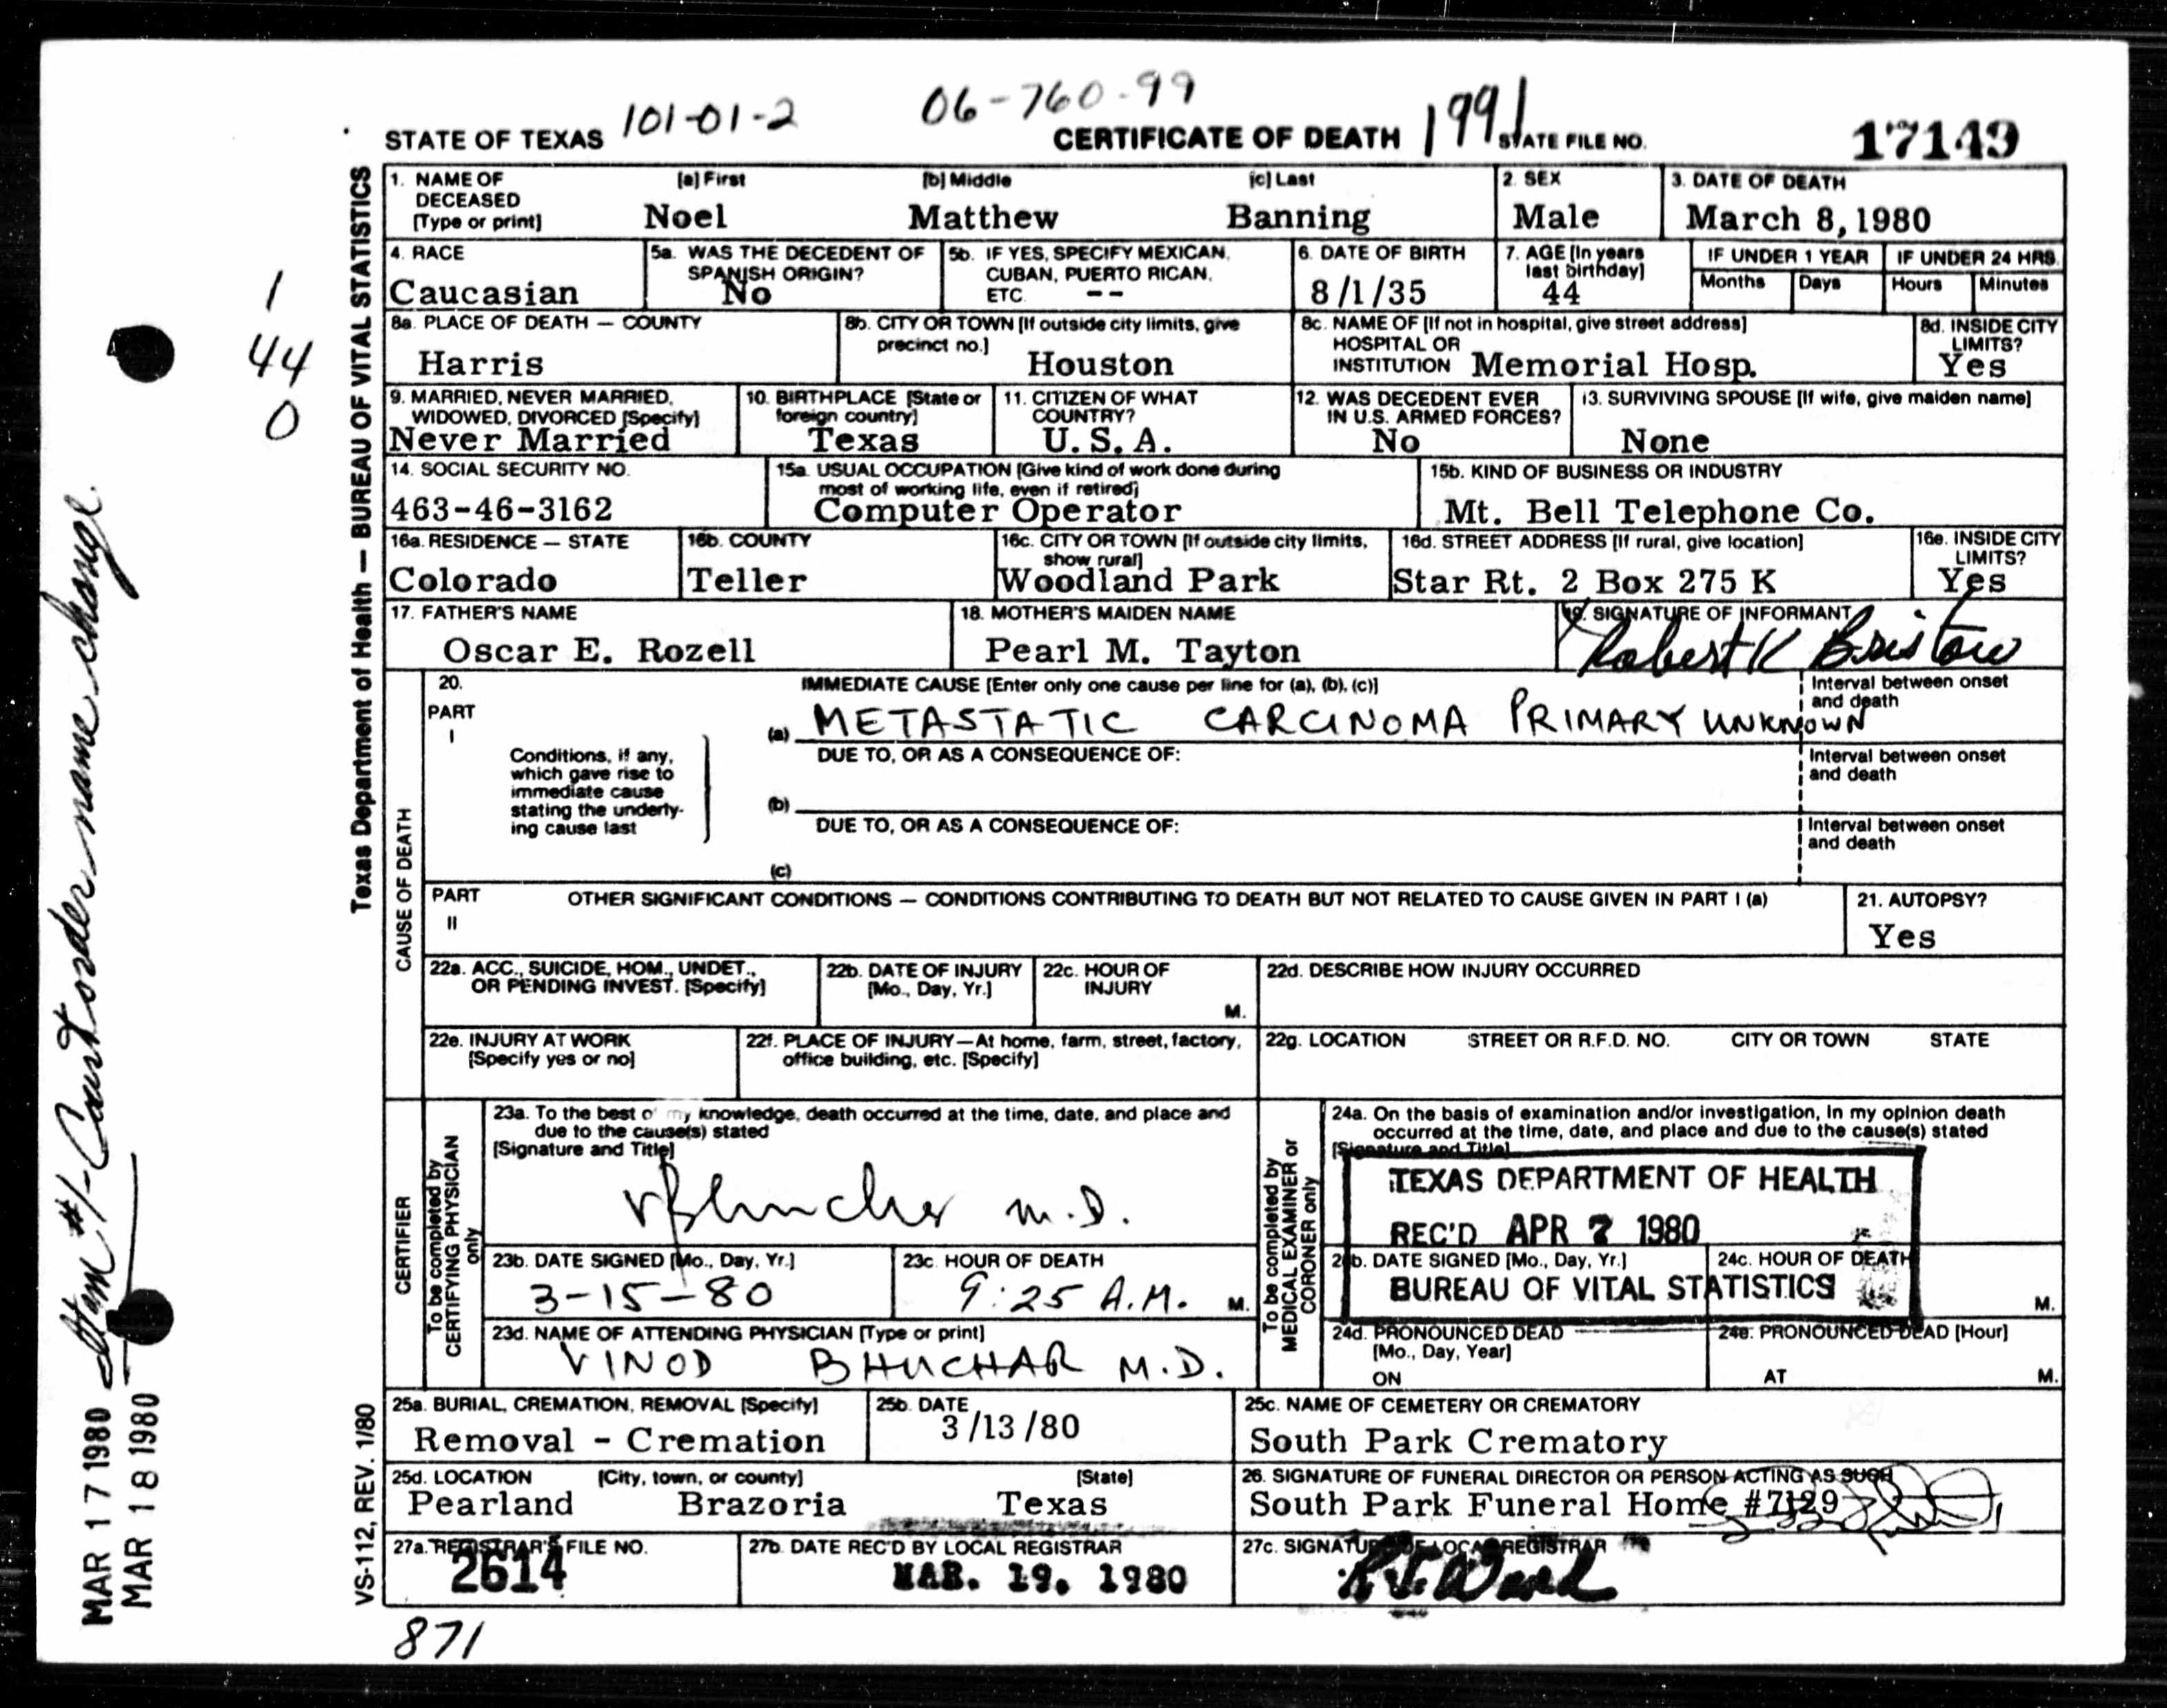 101-01-2 06-760-99
STATE OF TEXAS CERTIFICATE OF DEATH 1991 STATE FILE NO. 17149
Texas Department of Health — BUREAU OF VITAL STATISTICS
1. NAME OF DECEASED [Type or print] [a] First Noel [b] Middle Matthew [c] Last Banning
2. SEX Male
3. DATE OF DEATH March 8, 1980
4. RACE Caucasian
5a. WAS THE DECEDENT OF SPANISH ORIGIN? No
5b. IF YES, SPECIFY MEXICAN, CUBAN, PUERTO RICAN, ETC. --
6. DATE OF BIRTH 8/1/35
7. AGE [In years last birthday] 44
IF UNDER 1 YEAR Months Days
IF UNDER 24 HRS. Hours Minutes
1
44
0
8a. PLACE OF DEATH — COUNTY Harris
8b. CITY OR TOWN [If outside city limits, give precinct no.] Houston
8c. NAME OF [If not in hospital, give street address] HOSPITAL OR INSTITUTION Memorial Hosp.
8d. INSIDE CITY LIMITS? Yes
9. MARRIED, NEVER MARRIED, WIDOWED, DIVORCED [Specify] Never Married
10. BIRTHPLACE [State or foreign country] Texas
11. CITIZEN OF WHAT COUNTRY? U.S.A.
12. WAS DECEDENT EVER IN U.S. ARMED FORCES? No
13. SURVIVING SPOUSE [If wife, give maiden name] None
14. SOCIAL SECURITY NO. 463-46-3162
15a. USUAL OCCUPATION [Give kind of work done during most of working life, even if retired] Computer Operator
15b. KIND OF BUSINESS OR INDUSTRY Mt. Bell Telephone Co.
16a. RESIDENCE — STATE Colorado
16b. COUNTY Teller
16c. CITY OR TOWN [If outside city limits, show rural] Woodland Park
16d. STREET ADDRESS [If rural, give location] Star Rt. 2 Box 275 K
16e. INSIDE CITY LIMITS? Yes
17. FATHER'S NAME Oscar E. Rozell
18. MOTHER'S MAIDEN NAME Pearl M. Tayton
19. SIGNATURE OF INFORMANT Robert K Bristow
CAUSE OF DEATH
20. IMMEDIATE CAUSE [Enter only one cause per line for (a), (b), (c)]
PART I
(a) METASTATIC CARCINOMA PRIMARY UNKNOWN
Interval between onset and death
Conditions, if any, which gave rise to immediate cause stating the underlying cause last
DUE TO, OR AS A CONSEQUENCE OF:
(b)
Interval between onset and death
DUE TO, OR AS A CONSEQUENCE OF:
(c)
Interval between onset and death
PART II OTHER SIGNIFICANT CONDITIONS — CONDITIONS CONTRIBUTING TO DEATH BUT NOT RELATED TO CAUSE GIVEN IN PART I (a)
21. AUTOPSY? Yes
22a. ACC., SUICIDE, HOM., UNDET., OR PENDING INVEST. [Specify]
22b. DATE OF INJURY [Mo., Day, Yr.]
22c. HOUR OF INJURY M.
22d. DESCRIBE HOW INJURY OCCURRED
22e. INJURY AT WORK [Specify yes or no]
22f. PLACE OF INJURY—At home, farm, street, factory, office building, etc. [Specify]
22g. LOCATION STREET OR R.F.D. NO. CITY OR TOWN STATE
CERTIFIER
To be completed by CERTIFYING PHYSICIAN only
23a. To the best of my knowledge, death occurred at the time, date, and place and due to the cause(s) stated
[Signature and Title]
VBhuchar M.D.
23b. DATE SIGNED [Mo., Day, Yr.] 3-15-80
23c. HOUR OF DEATH 9:25 A.M. M.
23d. NAME OF ATTENDING PHYSICIAN [Type or print]
VINOD BHUCHAR M.D.
To be completed by MEDICAL EXAMINER or CORONER only
24a. On the basis of examination and/or investigation, in my opinion death occurred at the time, date, and place and due to the cause(s) stated
[Signature and Title]
TEXAS DEPARTMENT OF HEALTH
REC'D APR 7 1980
BUREAU OF VITAL STATISTICS
24b. DATE SIGNED [Mo., Day, Yr.]
24c. HOUR OF DEATH M.
24d. PRONOUNCED DEAD [Mo., Day, Year] ON
24e. PRONOUNCED DEAD [Hour] AT M.
25a. BURIAL, CREMATION, REMOVAL [Specify] Removal - Cremation
25b. DATE 3/13/80
25c. NAME OF CEMETERY OR CREMATORY South Park Crematory
25d. LOCATION [City, town, or county] [State]
Pearland Brazoria Texas
26. SIGNATURE OF FUNERAL DIRECTOR OR PERSON ACTING AS SUCH
South Park Funeral Home #7129
27a. REGISTRAR'S FILE NO. 2614
27b. DATE REC'D BY LOCAL REGISTRAR MAR. 19. 1980
27c. SIGNATURE OF LOCAL REGISTRAR
VS-112, REV. 1/80
871
Item #1-Court order name change.
MAR 17 1980
MAR 18 1980